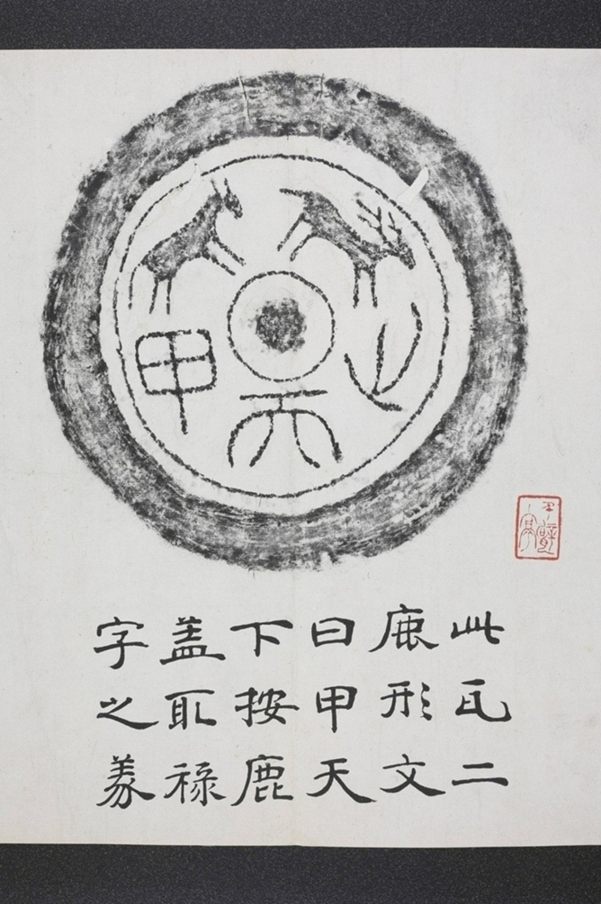 甲天下
此瓦二
鹿形文
曰甲天
下按鹿
盖取禄
字之義